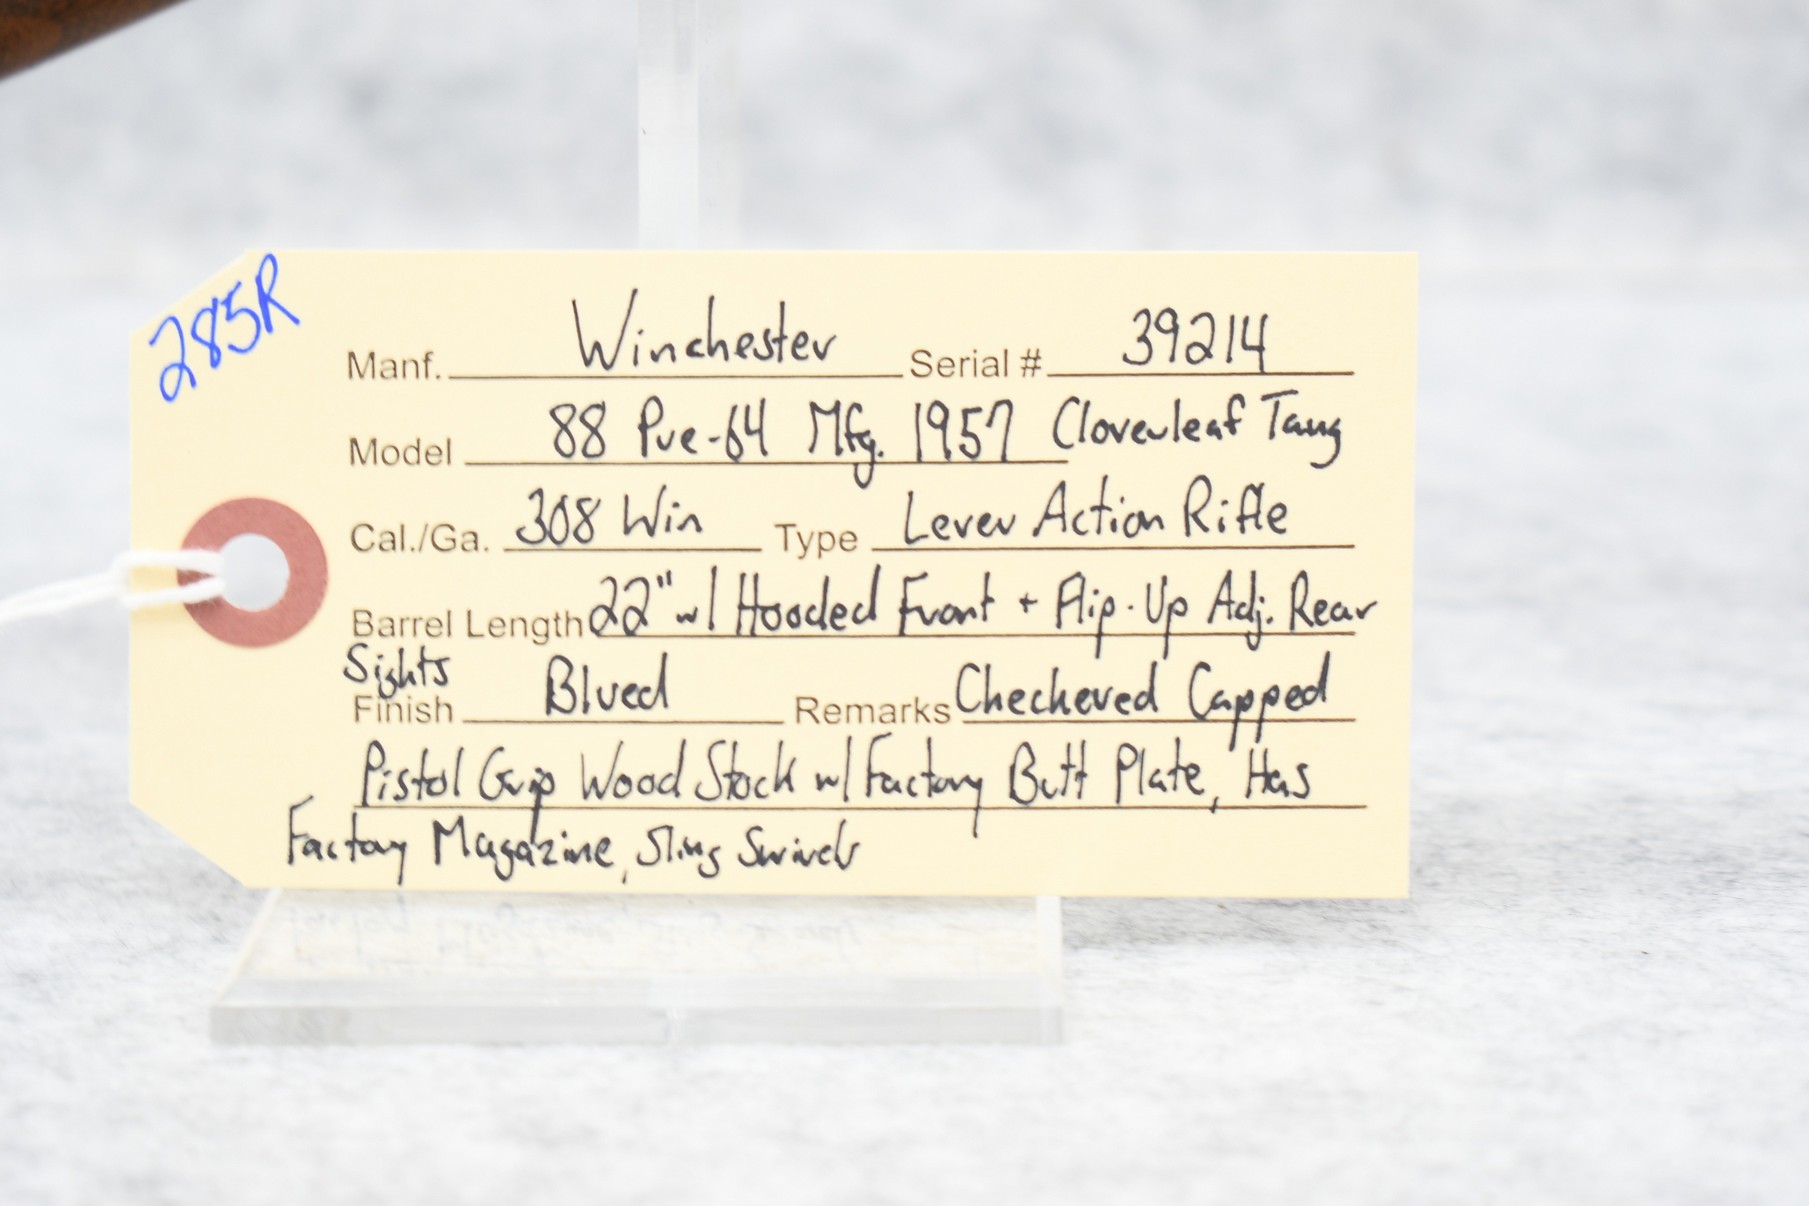 285R
Manf. Winchester Serial # 39214
Model 88 Pre-64 Mfg. 1957 Cloverleaf Tang
Cal./Ga. 308 Win Type Lever Action Rifle
Barrel Length 22" w/ Hooded Front + Flip-Up Adj. Rear
Sights
Finish Blued Remarks Checkered Capped
Pistol Grip Wood Stock w/ Factory Butt Plate, Has
Factory Magazine, Sling Swivels